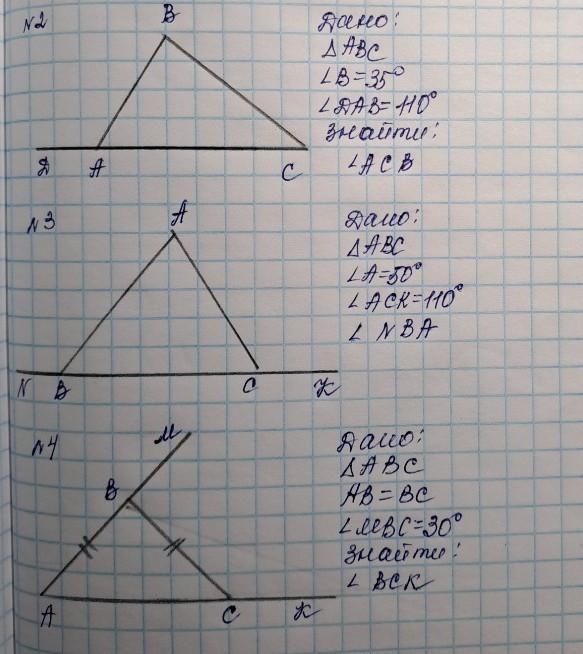 №2
B
Д
A
C
Дано:
△ABC
∠B=35°
∠DAB=110°
Знайти:
∠ACB
№3
A
N
B
C
K
Дано:
△ABC
∠A=50°
∠ACK=110°
∠NBA
№4
M
B
A
C
K
Дано:
△ABC
AB=BC
∠MBC=30°
Знайти:
∠BCK